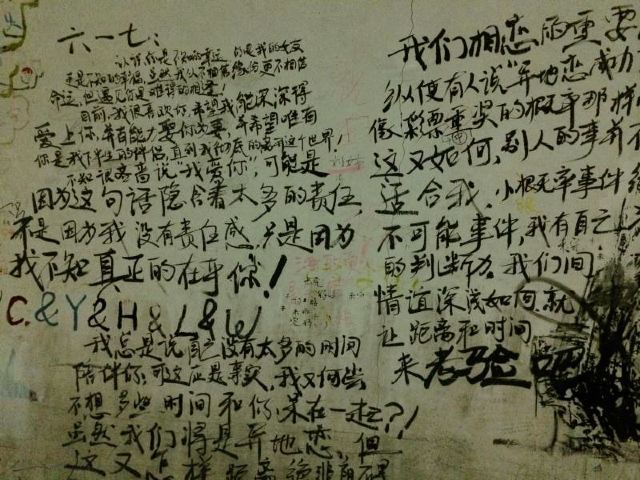 六一七：
认识你是不知的幸运
还是不知的幸福，虽然我从不相信缘分更不相信
命运，但遇见你是难得的相逢！
目前，我很喜欢你，希望我能深深得
爱上你，并有能力要你，并希望唯有
你是我下半生的伴侣，直到我彻底的离开这个世界！
不知很容易说"我爱你"，可能是
因为这句话隐含着太多的责任，
不是因为我没有责任感，只是因为
我不知真正的在乎你！
C.&Y&H&L&W
我总是说自己没有太多的时间
陪伴你，可这正是事实，我又何尝
不想多些时间和你呆在一起？！
虽然我们将是异地恋，但
这又怎样，距离绝非
我们相恋 重要
纵使有人说"异地恋成功
像彩票重奖的概率那样
这又如何，别人的事
适合我，小概率事件
不可能事件，我有自己
的判断力，我们间
情谊深浅如何就
让距离和时间
来考验吧